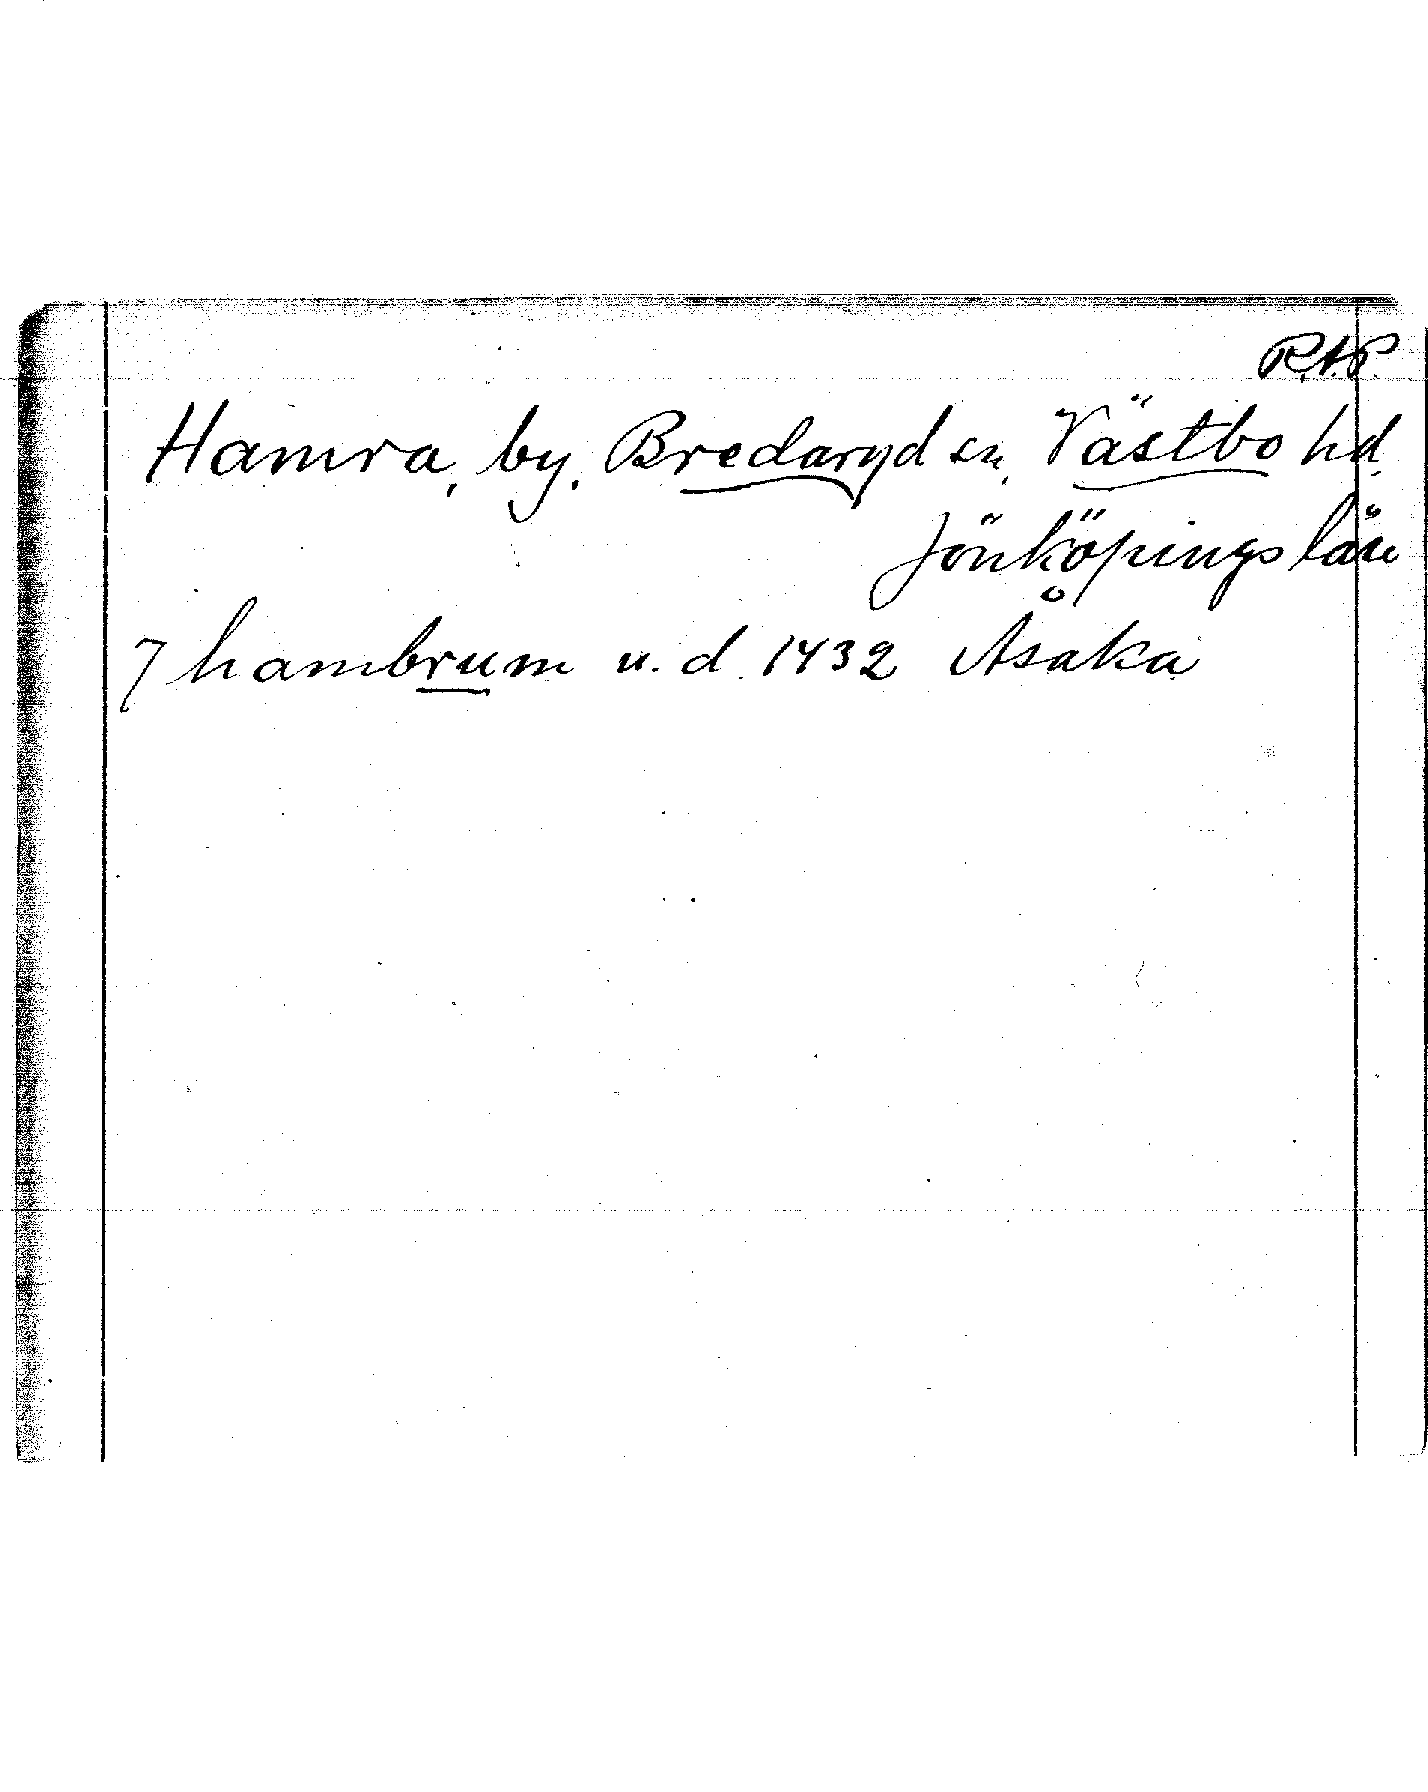 R.A.P.
Hamra, by, Bredaryd sn, Västbo hd,
Jönköpings län
7 hambrum u. d. 1432 Åsaka